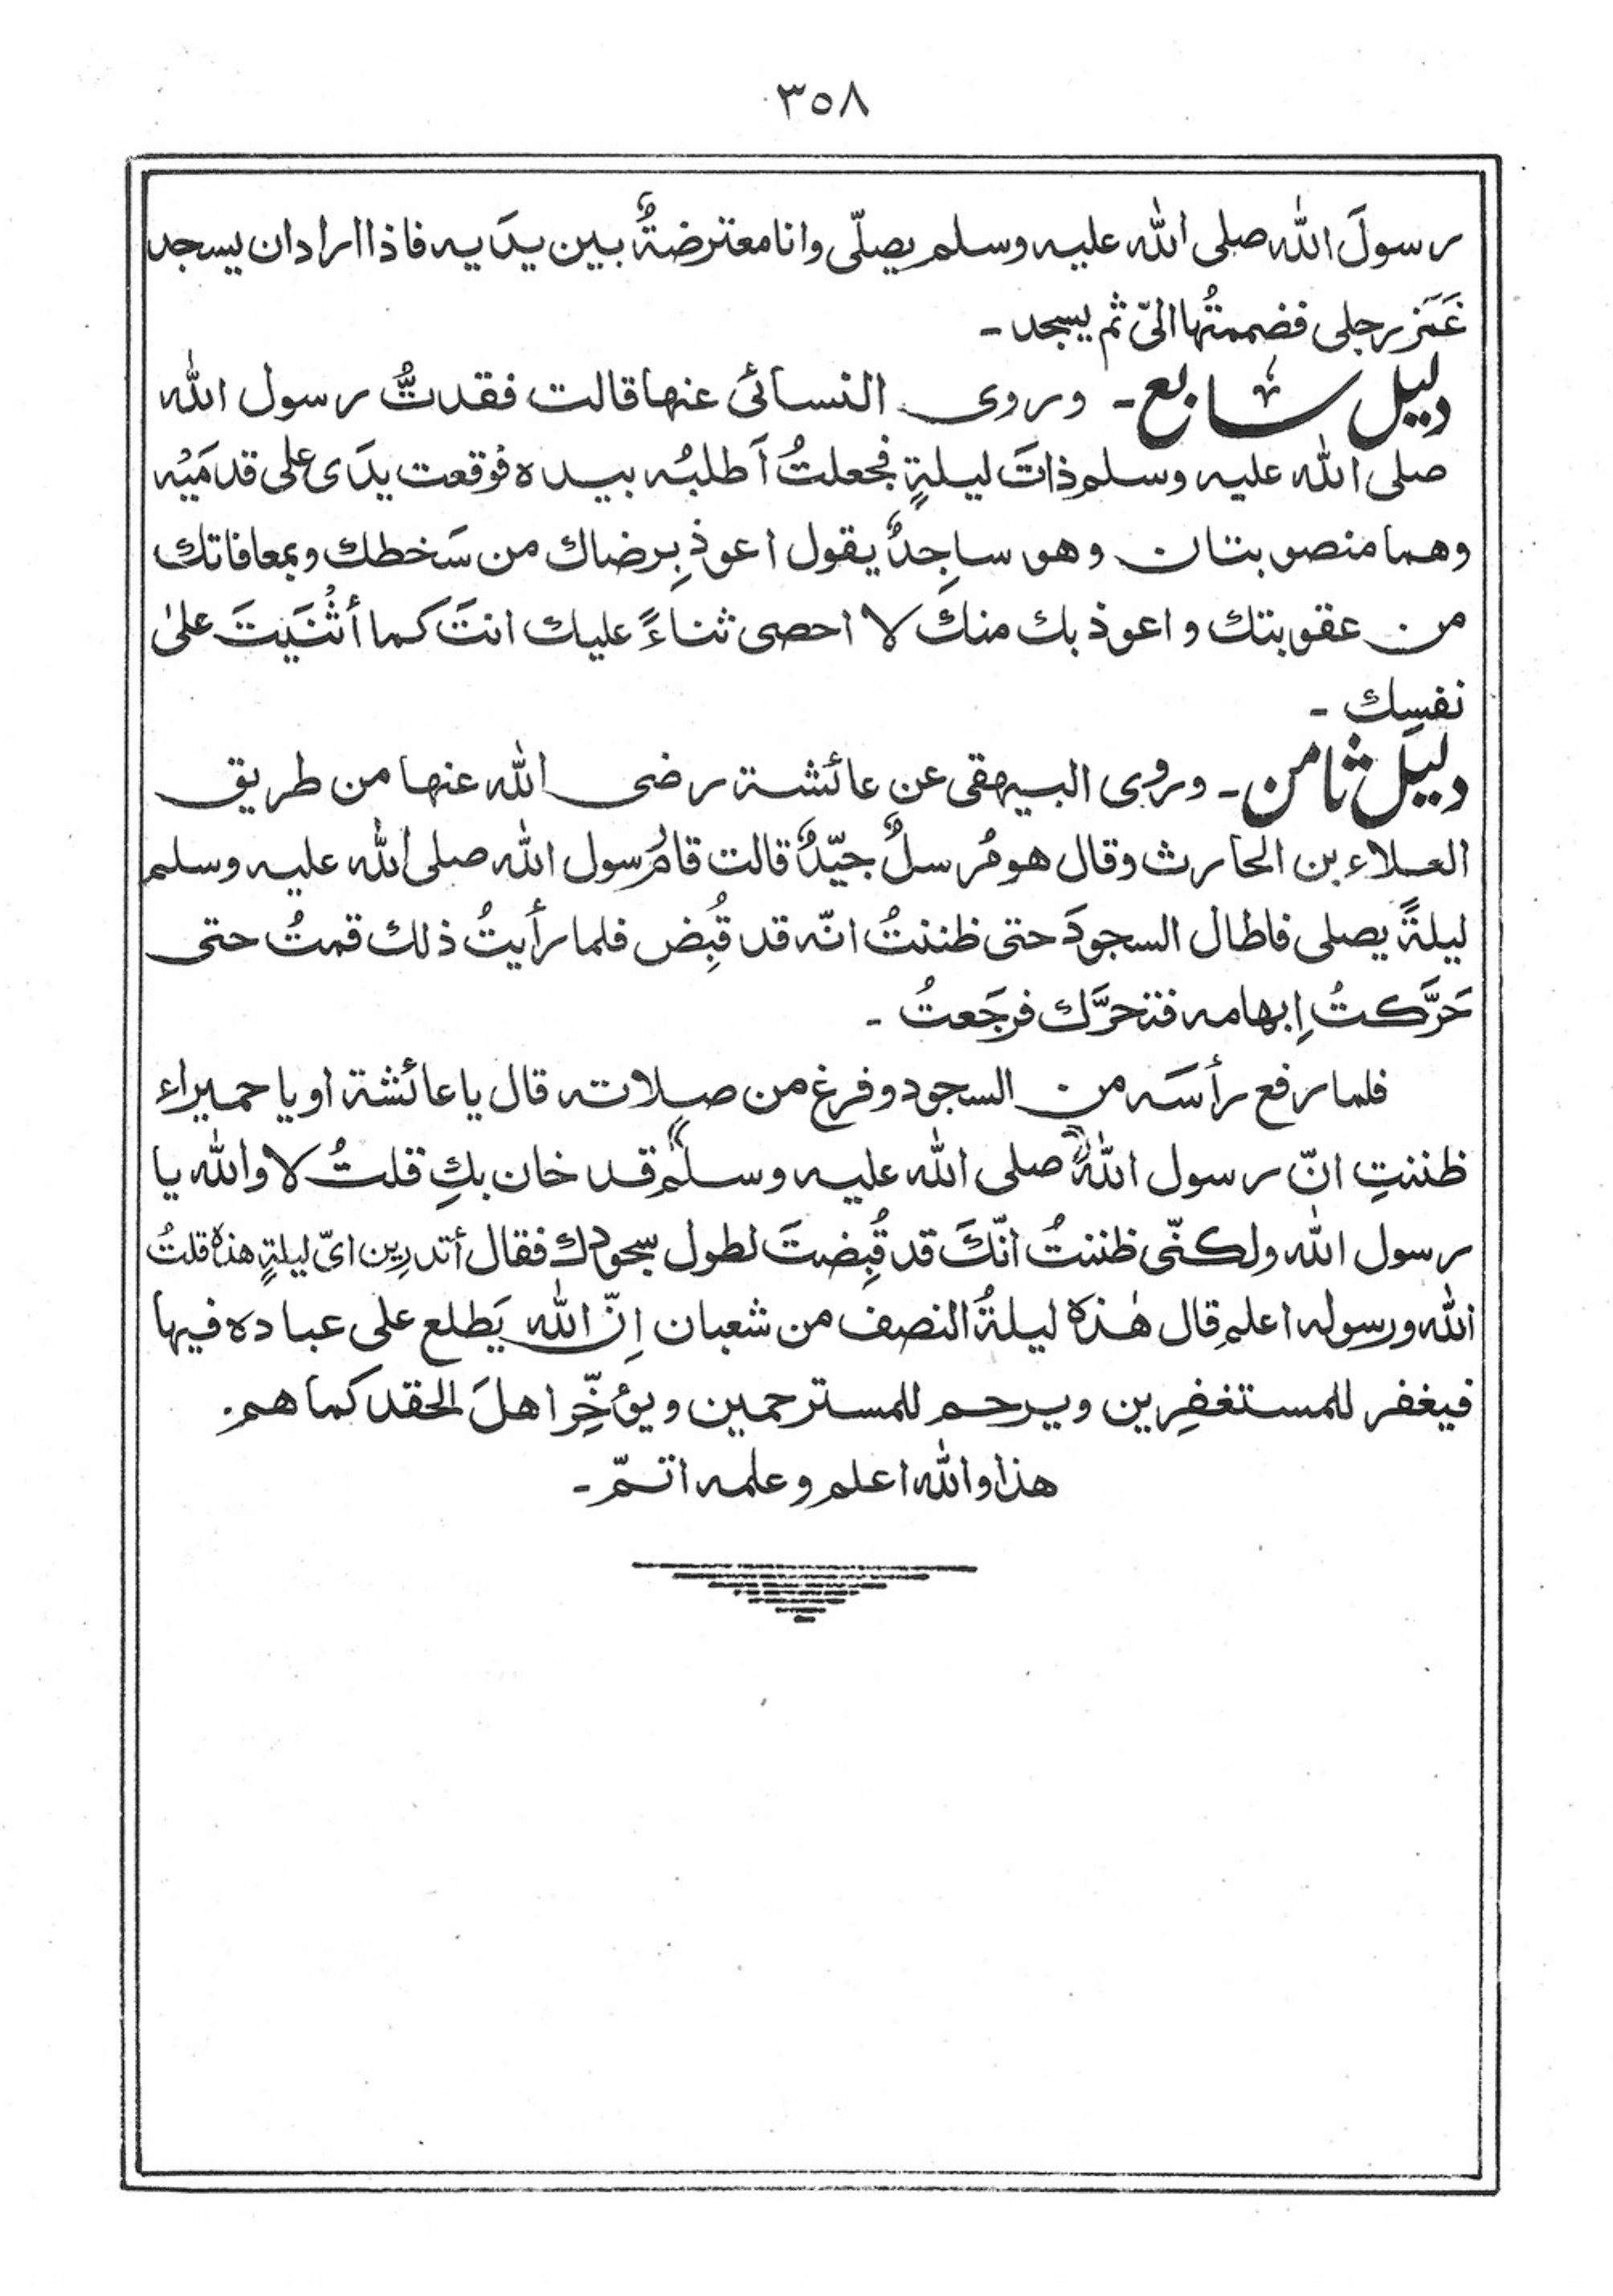 ٣٥٨
رسولَ الله صلى الله عليه وسلم يصلّى وانا معترضةٌ بين يدَيه فاذا اراد ان يسجد
غَمَز رجلى فضممتُها الىّ ثم يسجد ۔
دليل سابع ۔ وروى النسائى عنها قالت فقدتُّ رسول الله
صلى الله عليه وسلم ذاتَ ليلةٍ فجعلتُ اَطلبُه بيده فوقعت يدَى على قدمَيْه
وهما منصوبتان وهو ساجِدٌ يقول اعوذ بِرضاك من سَخطك وبمعافاتك
من عقوبتك و اعوذ بك منك لا احصى ثناءً عليك انتَ كما أثْنَيتَ علىٰ
نفسِك ۔
دليل ثامن ۔ وروى البيهقى عن عائشة رضى الله عنها من طريق
العلاء بن الحارث وقال هو مُرسلٌ جيّدٌ قالت قام رسول الله صلى الله عليه وسلم
ليلةً يصلى فاطال السجودَ حتى ظننتُ انّه قد قُبِض فلما رأيتُ ذلك قمتُ حتى
حَرَّكتُ اِبهامه فتحرَّك فرجَعتُ ۔
فلما رفع رأسَه من السجود وفرغ من صلاته قال يا عائشة او يا حميراء
ظننتِ انّ رسول الله صلى الله عليه وسلم قد خان بكِ قلتُ لا والله يا
رسول الله ولكنّى ظننتُ انّكَ قد قُبِضتَ لطول سجودك فقال أتدرِين اىّ ليلةٍ هذه قلتُ
الله ورسوله اعلم قال هٰذه ليلةُ النصف من شعبان اِنّ الله يَطلع على عباده فيها
فيغفر للمستغفِرين ويرحم للمسترحمين ويؤخِّر اهلَ الحقد كما هم.
هذا والله اعلم وعلمه اتمّ ۔